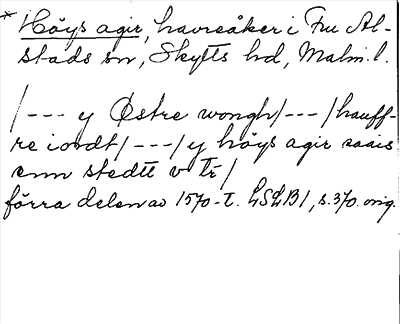 * Höys agir, havreåker i Fru Al-
stads sn, Skytts hd, Malm. l.
/--- y Østre wongh/---/hauff-
re iordt/---/y höys agir saais
enn stedtt v tr/
förra delen av 1570-t. LSLB1, s. 370. orig.